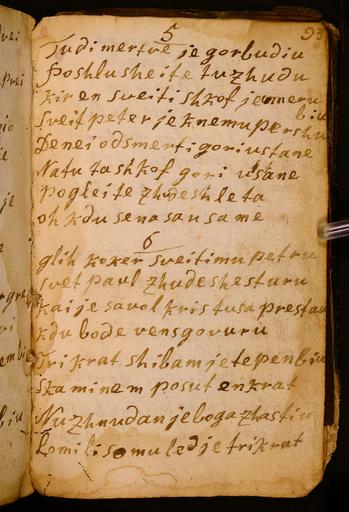 5
93
Tudi mertve je gorbudiu
Poshlusheite tu zhudu
kir en sveiti shkof je umeru biu
Sveit peter je knemu pershu
Denei od smerti gori ustane
Natu ta shkof gori ustane
Pogleite zhudesh le ta
oh kdu se nas au same
6
glih koker sveitimu petru
svet paul zhudesh esturu
kai je savol kristusa prestau
kdu bode vens govuru
Trikrat shibam je tepen biu
Skaminem posut enkrat
Nuzhnudan je boga zhastiu
Lomili so mu led je trikrat